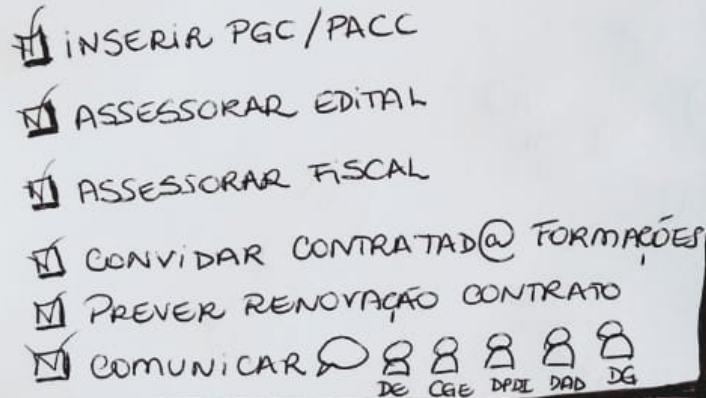 INSERIR PGC/PACC
ASSESSORAR EDITAL
ASSESSORAR FISCAL
CONVIDAR CONTRATAD@ FORMAÇÕES
PREVER RENOVAÇÃO CONTRATO
COMUNICAR
DE CGE DPDI DAD DG